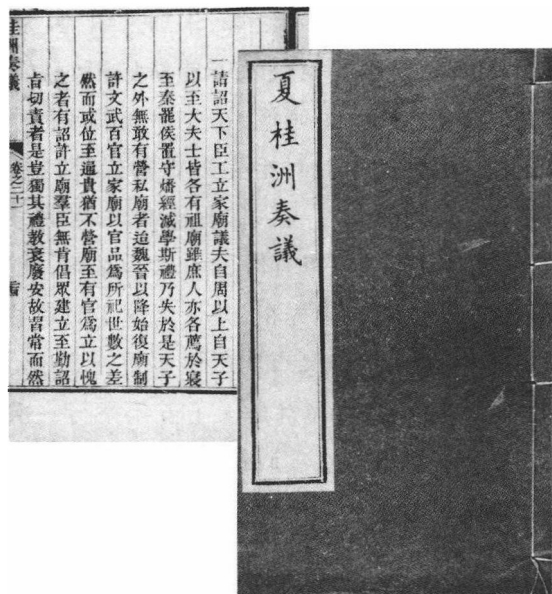 夏桂洲奏議
桂洲奏議
卷之二十一
一請詔天下臣工立家廟議夫自周以上自天子
以至大夫士皆各有祖廟雖庶人亦各薦於寢
至秦罷侯置守燔經滅學斯禮乃失於是天子
之外無敢有營私廟者迨魏晉以降始復廟制
許文武百官立家廟以官品爲所祀世數之差
然而或位至通貴猶不營廟至有官爲立以愧
之者有詔許立廟羣臣無肯倡眾建立至勤詔
旨切責者是豈獨其禮教衰廢安故習常而然